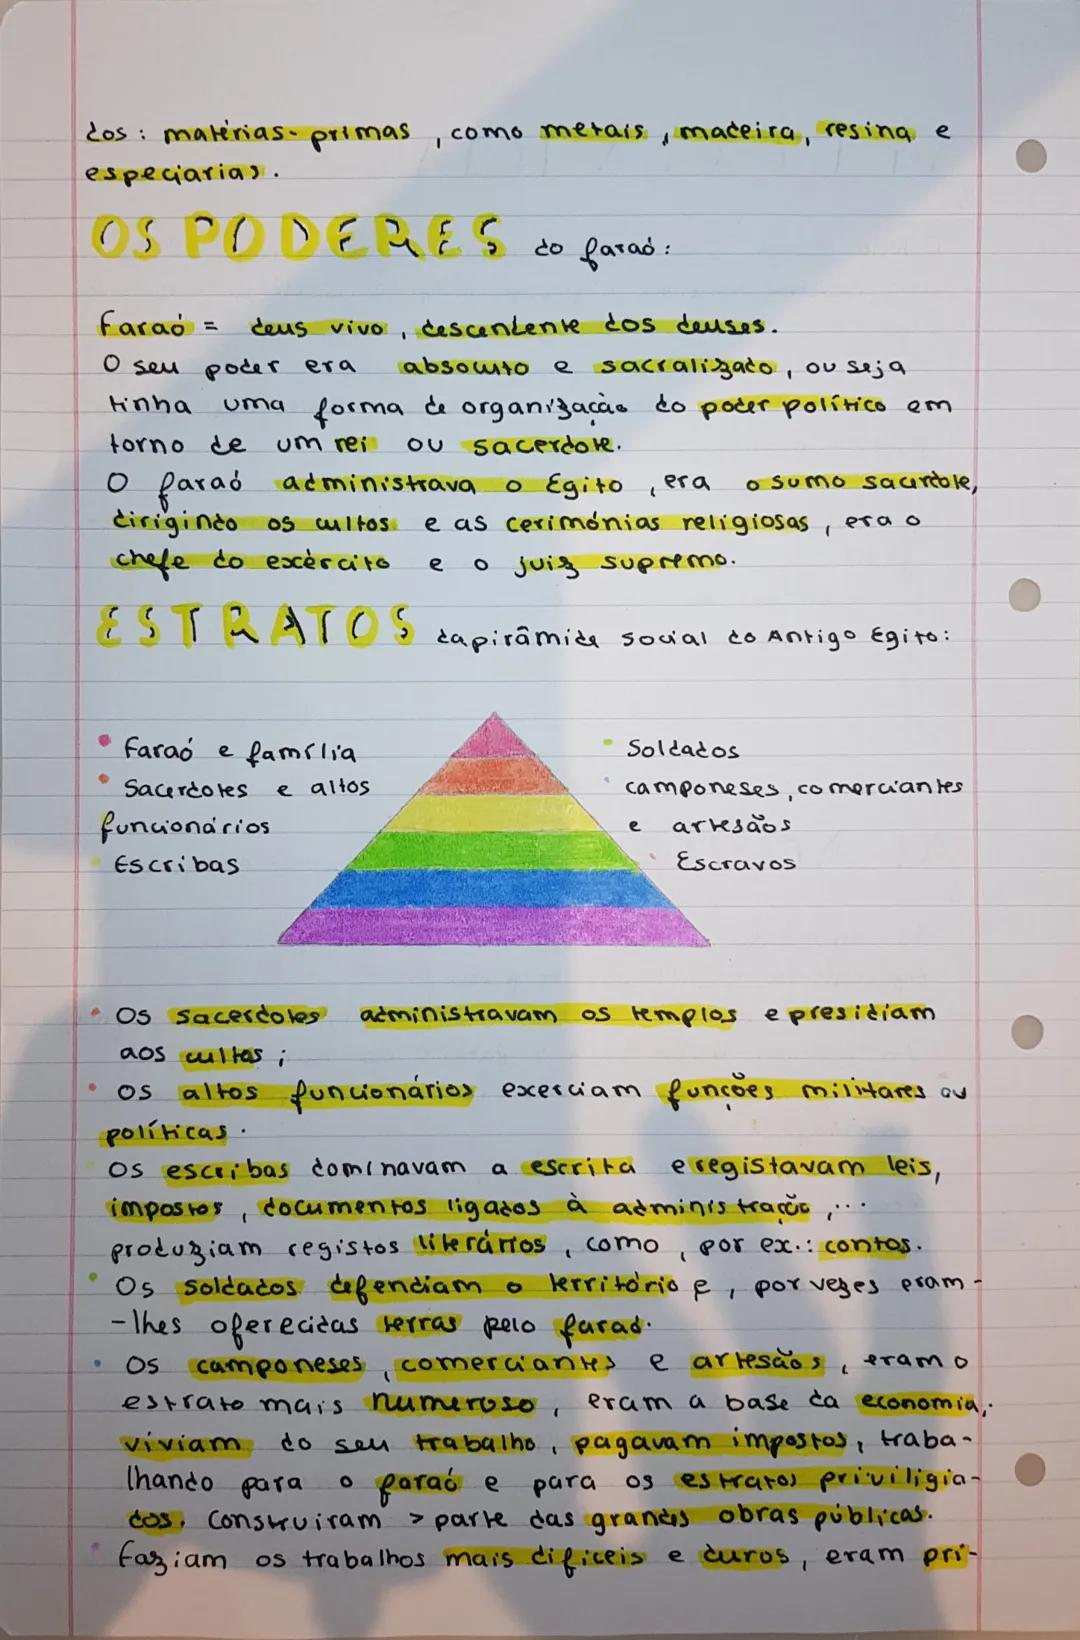 dos: matérias-primas, como metais, madeira, resina e
especiarias.
OS PODERES do faraó:
Faraó = deus vivo, descendente dos deuses.
O seu poder era absoluto e sacralizado, ou seja
tinha uma forma de organização do poder político em
torno de um rei ou sacerdote.
O faraó administrava o Egito, era o sumo sacerdote,
dirigindo os cultos e as cerimónias religiosas, era o
chefe do exército e o juiz supremo.
ESTRATOS da pirâmide social do Antigo Egito:
• Faraó e família
• Sacerdotes e altos
funcionários
• Escribas
• Soldados
• camponeses, comerciantes
e artesãos
• Escravos
• Os sacerdotes administravam os templos e presidiam
aos cultos;
• Os altos funcionários exerciam funções militares ou
políticas.
Os escribas dominavam a escrita e registavam leis,
impostos, documentos ligados à administração,...
produziam registos literários, como, por ex.: contos.
• Os soldados defendiam o território e, por vezes eram-
-lhes oferecidas terras pelo faraó.
• Os camponeses, comerciantes e artesãos, eram o
estrato mais numeroso, eram a base da economia,
viviam do seu trabalho, pagavam impostos, traba-
lhando para o faraó e para os estratos priviligia-
dos. Construiram > parte das grandes obras públicas.
• faziam os trabalhos mais dificeis e duros, eram pri-